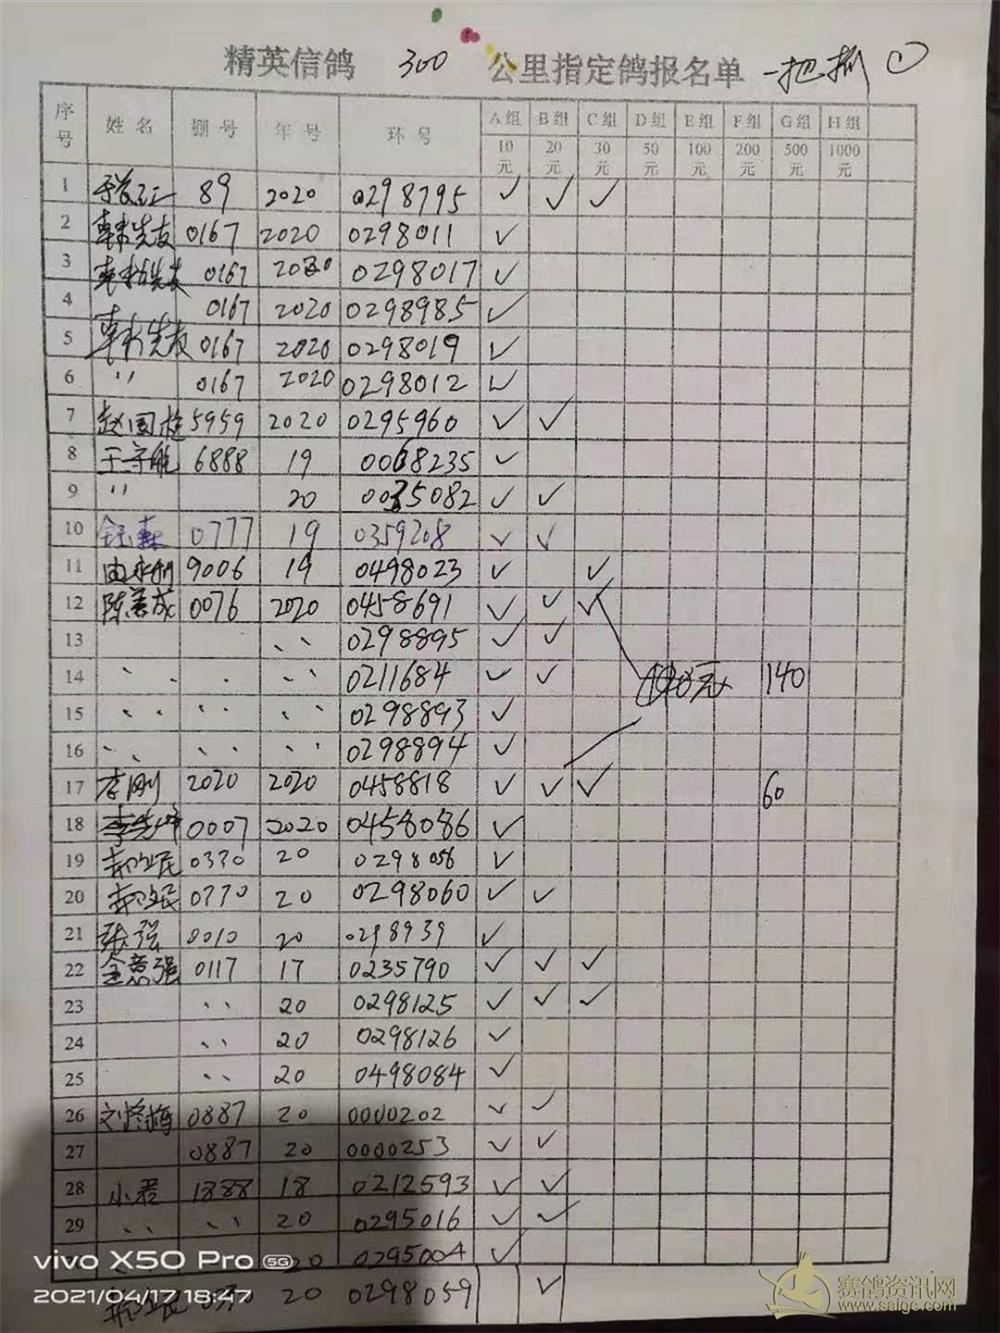 精英信鸽 300 公里指定鸽报名单 一把抓 ①
序号 姓名 捌号 年号 环号 A组 B组 C组 D组 E组 F组 G组 H组
10元 20元 30元 50元 100元 200元 500元 1000元
1 89 2020 0298795 ✓ ✓ ✓
2 韩先友 0167 2020 0298011 ✓
3 韩先友 0167 2020 0298017 ✓
4 0167 2020 0298985 ✓
5 韩先友 0167 2020 0298019 ✓
6 〃 0167 2020 0298012 ✓
7 赵国柱 5959 2020 0295960 ✓ ✓
8 于守能 6888 19 0068235 ✓
9 〃 20 0035082 ✓ ✓
10 0777 19 0359208 ✓ ✓
11 9006 19 0498023 ✓ ✓
12 陈善成 0076 2020 0458691 ✓ ✓ ✓
13 〃 0298895 ✓ ✓
14 〃 〃 0211684 ✓ ✓ 140
15 〃 〃 〃 0298893 ✓
16 〃 〃 〃 0298894 ✓
17 李刚 2020 2020 0458818 ✓ ✓ ✓ 60
18 0007 2020 0458086 ✓
19 20 0298056 ✓
20 20 0298060 ✓ ✓
21 张强 0010 20 0298939 ✓
22 金意强 0117 17 0235790 ✓ ✓ ✓
23 〃 20 0298125 ✓ ✓ ✓
24 〃 20 0298126 ✓
25 〃 20 0498084 ✓
26 0887 20 0000202 ✓ ✓
27 0887 20 0000253 ✓ ✓
28 小君 1888 18 0212593 ✓ ✓
29 〃 〃 20 0295016 ✓ ✓
20 0295004 ✓
20 0298059 ✓
vivo X50 Pro 5G
2021/04/17 18:47
赛鸽资讯网
www.saigc.com